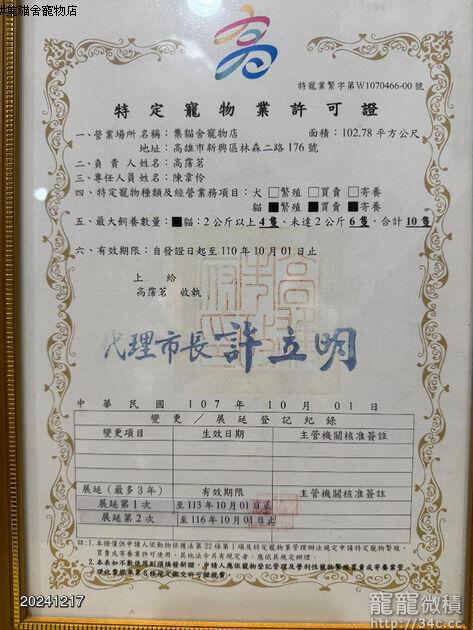 #集貓舍寵物店
特寵業繁字第W1070466-00號
特定寵物業許可證
一、營業場所名稱：集貓舍寵物店 面積：102.78平方公尺
地址：高雄市新興區林森二路176號
二、負責人姓名：高霈茗
三、專任人員姓名：陳韋伶
四、特定寵物種類及經營業務項目：犬□繁殖□買賣□寄養
貓■繁殖■買賣■寄養
五、最大飼養數量：■貓：2公斤以上4隻、未達2公斤6隻，合計10隻
六、有效期限：自發證日起至110年10月01日止
上 給
高霈茗 收執
代理市長 許立明
中華民國 107 年 10 月 01 日
變更／展延登記紀錄
變更項目 生效日期 主管機關核准簽註
展延（最多3年） 有效期限 主管機關核准簽註
展延第1次 至113年10月01日止
展延第2次 至116年10月01日止
註：1.本證係供申請人依動物保護法第22條第1項及特定寵物業管理辦法規定申請特定寵物繁殖、
買賣或寄養業許可使用，其他法令另有規定者，應依其規定辦理。
2.本表如不敷使用則須換發新證，申請人應依寵物登記管理及營利性寵物繁殖買賣或寄養業管
理收費標準第6條規定繳交許可證規費。
20241217
寵寵微積
http://34c.cc